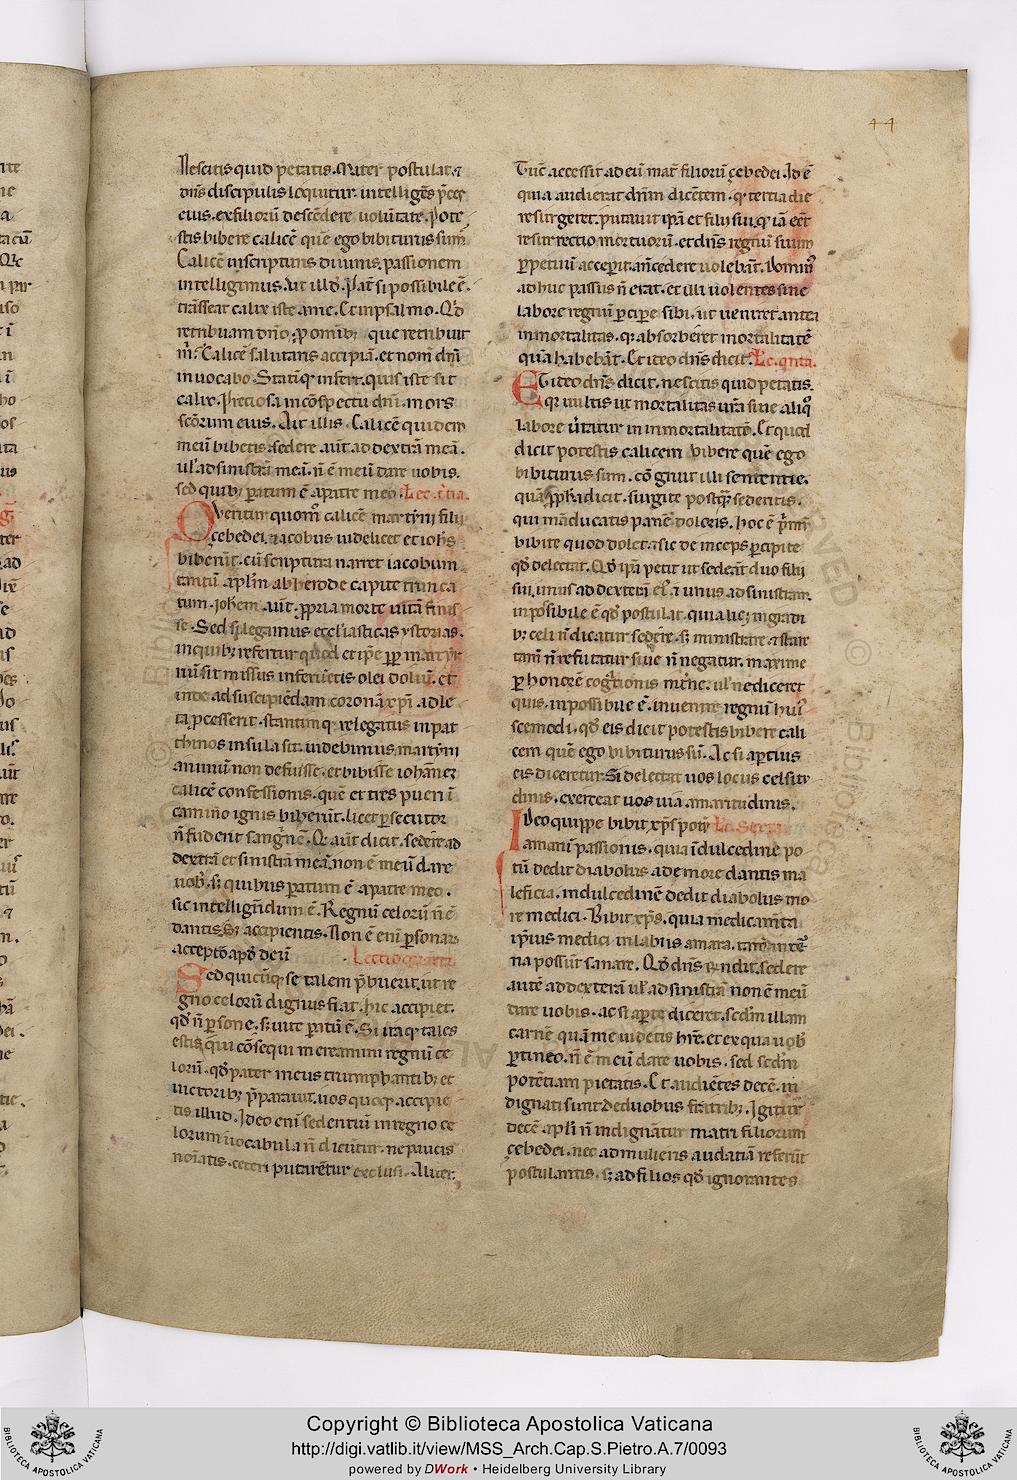 44
Nescitis quid petatis. Mater postulat. ⁊
dn̄s discipulis loquitur. intelligēs p̄ces
eius. ex filiorū descēdere uolūtate. Pote
stis bibere calicē quē ego bibiturus sum̄.
Calicē in scripturis diuinis. passionem
intelligimus. Vt illđ. Pat̄ si possibile ē.
trāsseat calix iste a me. Et in psalmo. Qđ
retribuam dn̄o. ꝓ omīb; que retribuit
m̄. Calicē salutaris accipiā. et nom̄ dn̄i
inuocabo. Statīq; infert. quis iste sit
calix. Preciosa in cōspectu dn̄i. mors
scōrum eius. Ait illis. Calicē quidem
meū bibetis. sedere aūt ad dextrā meā.
ul' ad sinistrā meā. n̄ ē meū dare uobis.
sed quib; paratum ē a patre meo. Lec. t'tia.
Queritur quom̄ calicē martyrii filii
çebedei. iacobus uidelicet et ioh̄s
biberūt. cū scriptura narret iacobum
tantū apl̄m ab herode capite trunca
tum. joh̄em aūt. ꝓpria morte uitā finis
se. Sed si legamus eccl'iasticas ystorias.
in quib; refertur quod et ip̄e ꝓp̄ martyri
nū sit missus in feruētis olei doliū. et
inde ad suscipiēdam coronā xp̄i adle
ta ꝓcesserit. statimq; relegatus in pat
thmos insula sit. uidebimus martyrii
animū non defuisse. et bibisse iohānez
calicē confessionis. quē et tres pueri ī
camino ignis biberūt. licet ꝑsecutor
n̄ fuderit sanguinē. Qđ aūt dicit. sedere ad
dextrā et sinistrā meā. non ē meū dare
uob'. s; quibus paratum ē a patre meo.
sic intelligēdum ē. Regnū celorū n̄ ē
dantis. s; accipientis. Non ē eni ꝑsonar
acceptō apđ deū Lectio quarta
Sed quicūq; se talem p̄buerit. ut re
gno celorū dignus fiat. hic accipiet.
qđ n̄ ꝑsone. s; uite paratū ē. Si itaq; tales
estis. qui cōsequi mereamini regnū ce
lorū. qđ pater meus triumphantib; et
uictorib; p̄parauit. uos quoq; accipie
tis illud. Ideo eni sedentiū in regno ce
lorum uocabula n̄ dicūtur. ne paucis
noīatis. ceteri putarētur exclusi. Aliter.
Tūc accessit ad eū mat̄ filiorū çebedei. Id ē
quia audierat dn̄m dicētem. q; tertia die
resurgeret. putauit ip̄a et filii sui. q; iā eēt
resurrectio mortuorū. et dn̄s regnū suum
ꝑpetuū acceperit. ān̄cedere uolebāt. Domin'
adhuc passus n̄ erat. et illi uolentes sine
labore regnū ꝑcipere sibi. ut ueniret antea
inmortalitas. q; absorberet mortalitatē
quā habebāt. Et ideo dn̄s dicit. Lc. qnta.
ET ideo dn̄s dicit. nescitis quid petatis.
Eqr uultis ut mortalitas ura sine aliq°
labore u'tatur in inmortalitatē. Et quod
dicit potestis calicem bibere quē ego
bibiturus sum. cōgruit illi sententie.
quā ꝓph̄a dicit. surgite postq; sedentis.
qui māducatis panē doloris. hoc ē p̄mū
bibite quod dolet. ⁊ sic deinceps ꝑcipite
qđ delectat. Qđ ip̄a petit ut sedeāt duo filii
sui. unus ad dexterā ei'. ⁊ unus ad sinistram.
inpossibile ē qđ postulat. quia lic; ingradi
b; celi n̄ dicatur sedere. s; ministrare ⁊ stare
tam̄ n̄ refutatur siue n̄ negatur. maxime
ꝑ honorē cogitionis mt'ne. ul' ne diceret
quis. inpossibile ē. inuenire regnū hui'
scemodi. qđ eis dicit potestis bibere cali
cem quē ego bibiturus sū. Ac si apertius
eis diceretur. Si delectat uos locus celsitu
dinis. exerceat uos uia amaritudinis.
Ideo quippe bibit xp̄s potū Lc. Sexta
amarū passionis. quia ī dulcedine po
tū dedit diabolus adē more dantis ma
leficia. in dulcedinē dedit diabolus mo
re medici. Bibit xp̄s. quia medicam̄ta
ip̄ius medici in labiis amara. tam̄ intē'
na possūt sanare. Qđ dn̄s rn̄dit. sedere
autē ad dexterā ul' ad sinistrā non ē meū
dare uobis. ac si aperte diceret. scd̄m illam
carnē quā me uidetis hr̄e. et ex qua uob'
ꝑtineo. n̄ ē meū dare uobis. sed scd̄m
potētiam pietatis. Et audiētes decē. in
dignati sunt de duobus fr̄atrib;. Igitur
decē apl'i n̄ indignātur matri filiorum
çebedei. nec ad mulieris audatiā referūt
postulantis. s; ad filios qđ ignorantes
Copyright © Biblioteca Apostolica Vaticana
http://digi.vatlib.it/view/MSS_Arch.Cap.S.Pietro.A.7/0093
powered by DWork • Heidelberg University Library
BIBLIOTECA APOSTOLICA VATICANA
BIBLIOTECA APOSTOLICA VATICANA